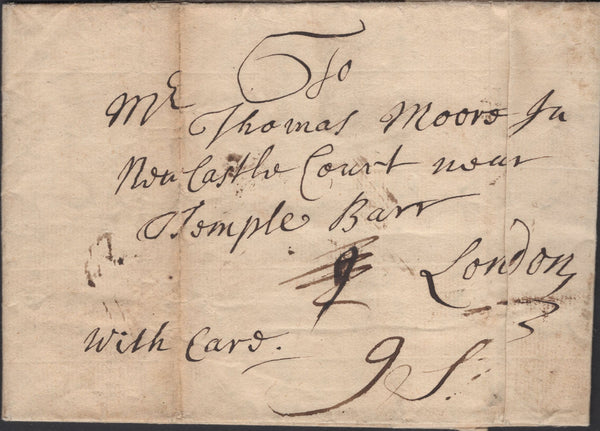 To
Mr
Thomas Moore In
New Castle Court near
Temple Barr
London
With Care.
9